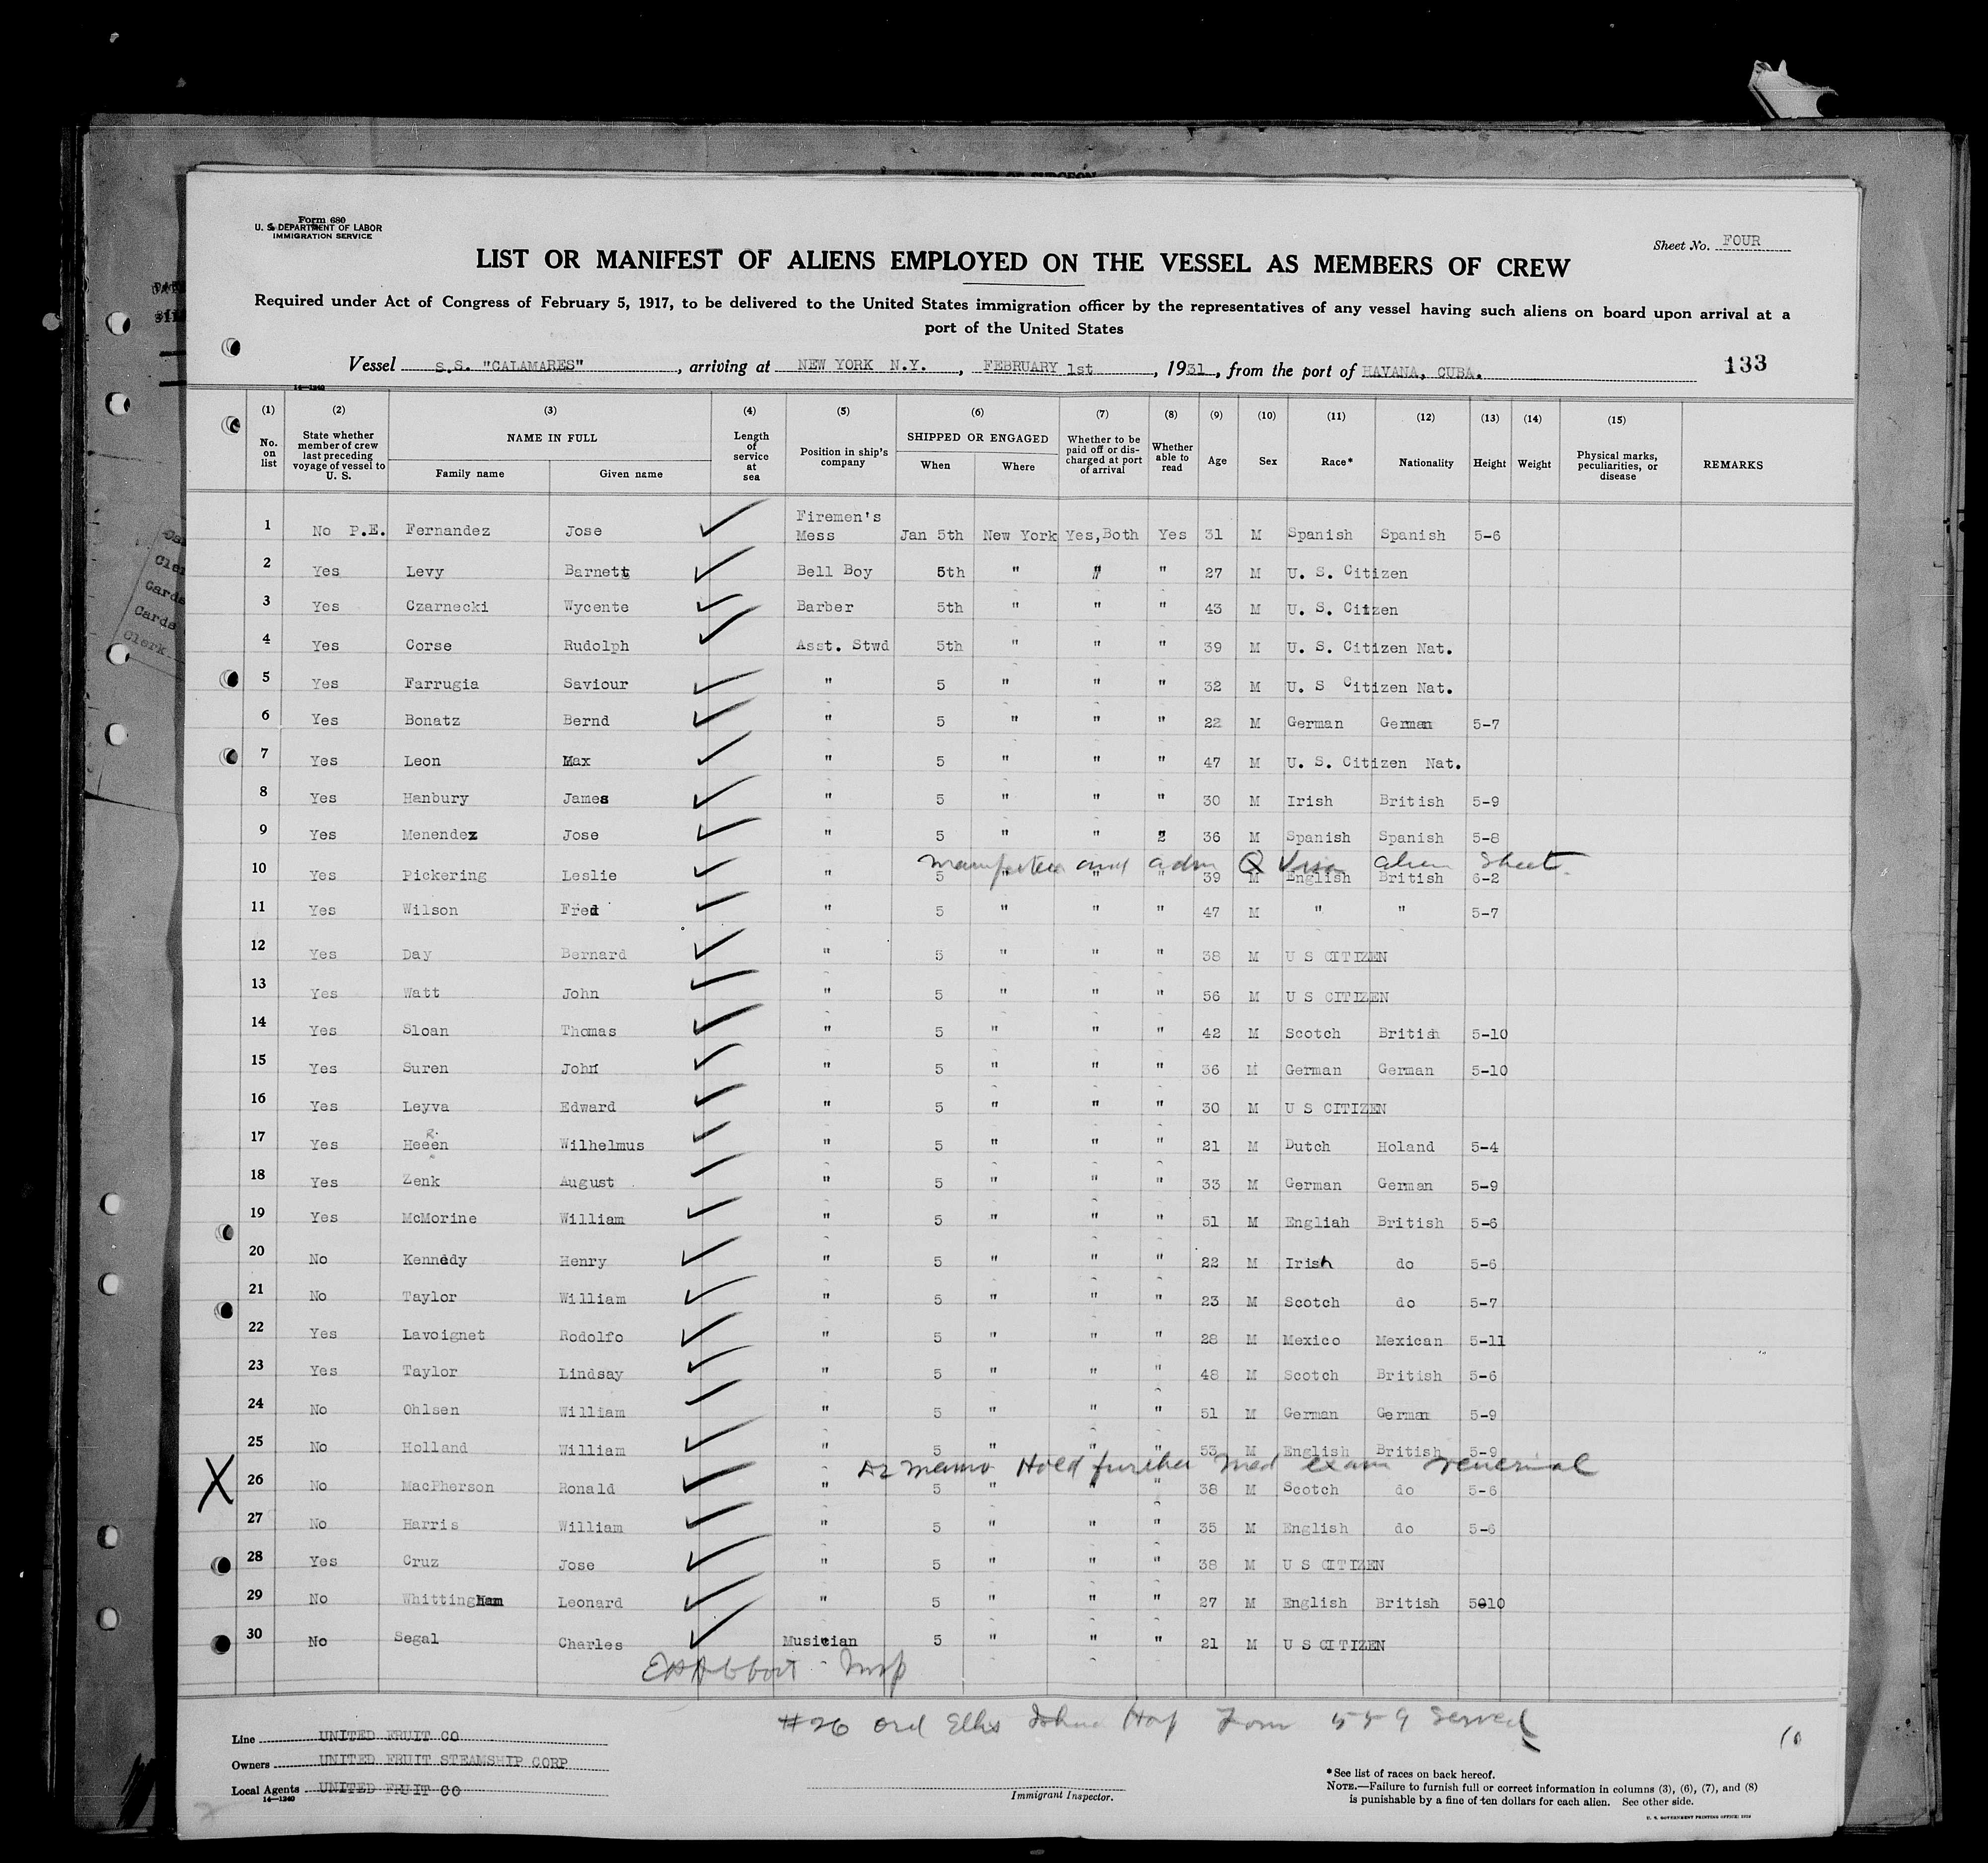 Form 680
U. S. DEPARTMENT OF LABOR
IMMIGRATION SERVICE
Sheet No. FOUR
LIST OR MANIFEST OF ALIENS EMPLOYED ON THE VESSEL AS MEMBERS OF CREW
Required under Act of Congress of February 5, 1917, to be delivered to the United States immigration officer by the representatives of any vessel having such aliens on board upon arrival at a
port of the United States
Vessel S.S. "CALAMARES", arriving at NEW YORK N.Y., FEBRUARY 1st, 1931, from the port of HAVANA, CUBA.
133
14—1240
(1) (2) (3) (4) (5) (6) (7) (8) (9) (10) (11) (12) (13) (14) (15)
No. on list
State whether member of crew last preceding voyage of vessel to U. S.
NAME IN FULL
Family name
Given name
Length of service at sea
Position in ship's company
SHIPPED OR ENGAGED
When
Where
Whether to be paid off or discharged at port of arrival
Whether able to read
Age
Sex
Race*
Nationality
Height
Weight
Physical marks, peculiarities, or disease
REMARKS
1 No P.E. Fernandez Jose Firemen's Mess Jan 5th New York Yes,Both Yes 31 M Spanish Spanish 5-6
2 Yes Levy Barnett Bell Boy 5th " " " 27 M U. S. Citizen
3 Yes Czarnecki Wycente Barber 5th " " " 43 M U. S. Citzen
4 Yes Corse Rudolph Asst. Stwd 5th " " " 39 M U. S. Citizen Nat.
5 Yes Farrugia Saviour " 5 " " " 32 M U. S Citizen Nat.
6 Yes Bonatz Bernd " 5 " " " 22 M German German 5-7
7 Yes Leon Max " 5 " " " 47 M U. S. Citizen Nat.
8 Yes Hanbury James " 5 " " " 30 M Irish British 5-9
9 Yes Menendez Jose " 5 " " " 36 M Spanish Spanish 5-8
Manifested and adm Visa alien Sheet
10 Yes Pickering Leslie " 5 " " " 39 M English British 6-2
11 Yes Wilson Fred " 5 " " " 47 M " " 5-7
12 Yes Day Bernard " 5 " " " 38 M U S CITIZEN
13 Yes Watt John " 5 " " " 56 M U S CITIZEN
14 Yes Sloan Thomas " 5 " " " 42 M Scotch British 5-10
15 Yes Suren John " 5 " " " 36 M German German 5-10
16 Yes Leyva Edward " 5 " " " 30 M U S CITIZEN
17 Yes Heeen Wilhelmus " 5 " " " 21 M Dutch Holand 5-4
18 Yes Zenk August " 5 " " " 33 M German German 5-9
19 Yes McMorine William " 5 " " " 51 M Engliah British 5-6
20 No Kennedy Henry " 5 " " " 22 M Irish do 5-6
21 No Taylor William " 5 " " " 23 M Scotch do 5-7
22 Yes Lavoignet Rodolfo " 5 " " " 28 M Mexico Mexican 5-11
23 Yes Taylor Lindsay " 5 " " " 48 M Scotch British 5-6
24 No Ohlsen William " 5 " " " 51 M German German 5-9
25 No Holland William " 5 " " " 53 M English British 5-9
memo Hold further med exam venereal
X 26 No MacPherson Ronald " 5 " " " 38 M Scotch do 5-6
27 No Harris William " 5 " " " 35 M English do 5-6
28 Yes Cruz Jose " 5 " " " 38 M U S CITIZEN
29 No Whittingham Leonard " 5 " " " 27 M English British 5010
30 No Segal Charles Musician 5 " " " 21 M U S CITIZEN
Abbott Insp
#26 Ord Ellis Island Hosp Form 559 Served
Line UNITED FRUIT CO
Owners UNITED FRUIT STEAMSHIP CORP
Local Agents UNITED FRUIT CO
14—1240
Immigrant Inspector.
*See list of races on back hereof.
NOTE.—Failure to furnish full or correct information in columns (3), (6), (7), and (8)
is punishable by a fine of ten dollars for each alien. See other side.